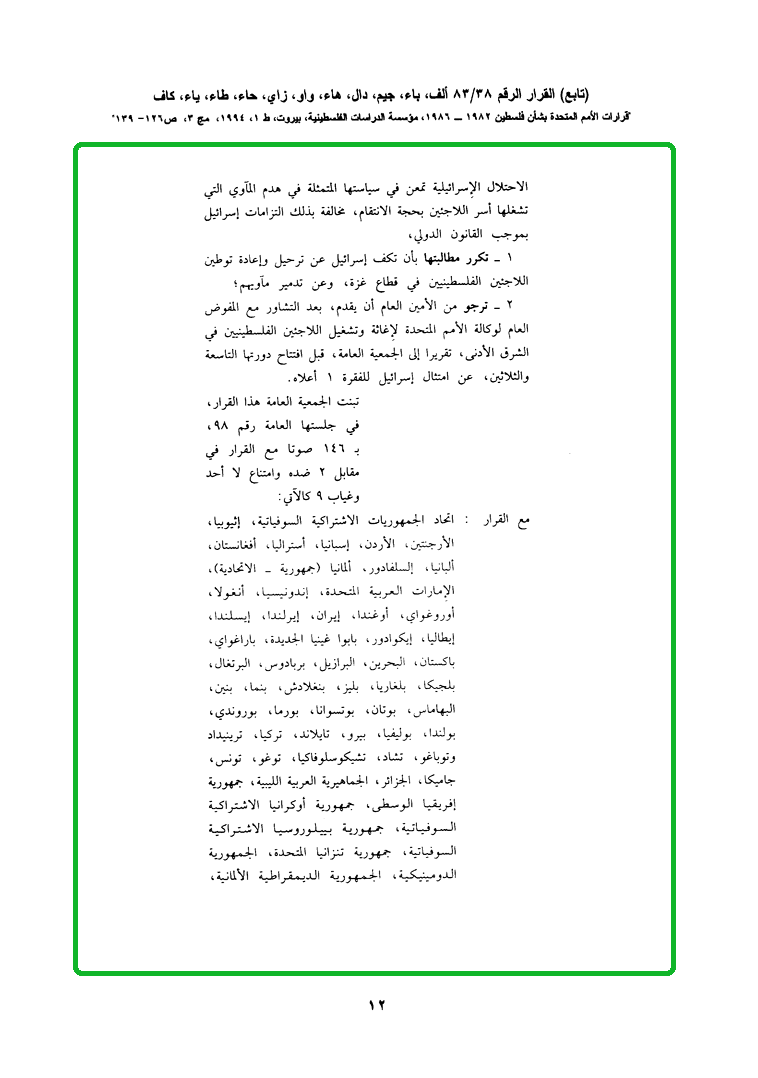 (تابع) القرار الرقم ٨٣/٣٨ ألف، باء، جيم، دال، هاء، واو، زاي، حاء، طاء، ياء، كاف
"قرارات الأمم المتحدة بشأن فلسطين ١٩٨٢ ــ ١٩٨٦، مؤسسة الدراسات الفلسطينية، بيروت، ط ١، ١٩٩٤، مج ٣، ص١٢٦- ١٣٩"
الاحتلال الإسرائيلية تمعن في سياستها المتمثلة في هدم المآوي التي
تشغلها أسر اللاجئين بحجة الانتقام، مخالفة بذلك التزامات إسرائيل
بموجب القانون الدولي،
١ ــ تكرر مطالبتها بأن تكف إسرائيل عن ترحيل وإعادة توطين
اللاجئين الفلسطينيين في قطاع غزة، وعن تدمير مآويهم؛
٢ ــ ترجو من الأمين العام أن يقدم، بعد التشاور مع المفوض
العام لوكالة الأمم المتحدة لإغاثة وتشغيل اللاجئين الفلسطينيين في
الشرق الأدنى، تقريرا إلى الجمعية العامة، قبل افتتاح دورتها التاسعة
والثلاثين، عن امتثال إسرائيل للفقرة ١ أعلاه.
تبنت الجمعية العامة هذا القرار،
في جلستها العامة رقم ٩٨،
بـ ١٤٦ صوتا مع القرار في
مقابل ٢ ضده وامتناع لا أحد
وغياب ٩ كالآتي:
مع القرار : اتحاد الجمهوريات الاشتراكية السوفياتية، إثيوبيا،
الأرجنتين، الأردن، إسبانيا، أستراليا، أفغانستان،
ألبانيا، إلسلفادور، ألمانيا (جمهورية ــ الاتحادية)،
الإمارات العربية المتحدة، إندونيسيا، أنغولا،
أوروغواي، أوغندا، إيران، إيرلندا، إيسلندا،
إيطاليا، إيكوادور، بابوا غينيا الجديدة، باراغواي،
باكستان، البحرين، البرازيل، بربادوس، البرتغال،
بلجيكا، بلغاريا، بليز، بنغلادش، بنما، بنين،
البهاماس، بوتان، بوتسوانا، بورما، بوروندي،
بولندا، بوليفيا، بيرو، تايلاند، تركيا، ترينيداد
وتوباغو، تشاد، تشيكوسلوفاكيا، توغو، تونس،
جاميكا، الجزائر، الجماهيرية العربية الليبية، جمهورية
إفريقيا الوسطى، جمهورية أوكرانيا الاشتراكية
السوفياتية، جمهورية بييلوروسيا الاشتراكية
السوفياتية، جمهورية تنزانيا المتحدة، الجمهورية
الدومينيكية، الجمهورية الديمقراطية الألمانية،
١٢